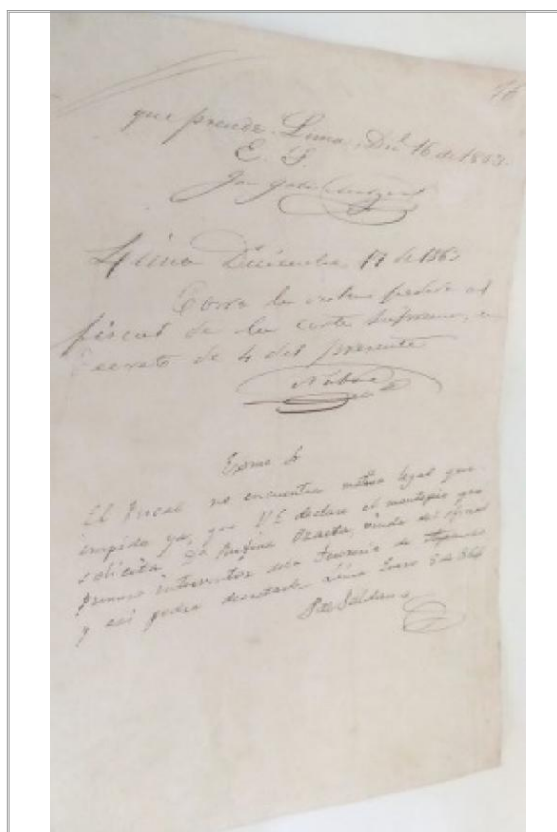 76
que precede. Lima, Dic. 16 de 1863.
E. S.
Lima Diciembre 17 de 1863
Corra la vista pedida al
fiscal de la corte Suprema, en
decreto de 4 del presente
Exmo S.
El Fiscal no encuentra motivo legal que
impida ya, que VE declare el montepio que
solicita Da Rufina Iraeta, viuda del oficial
primero interventor de la Tesoreria de
y asi podra decretarlo Lima Enero 8 de 864